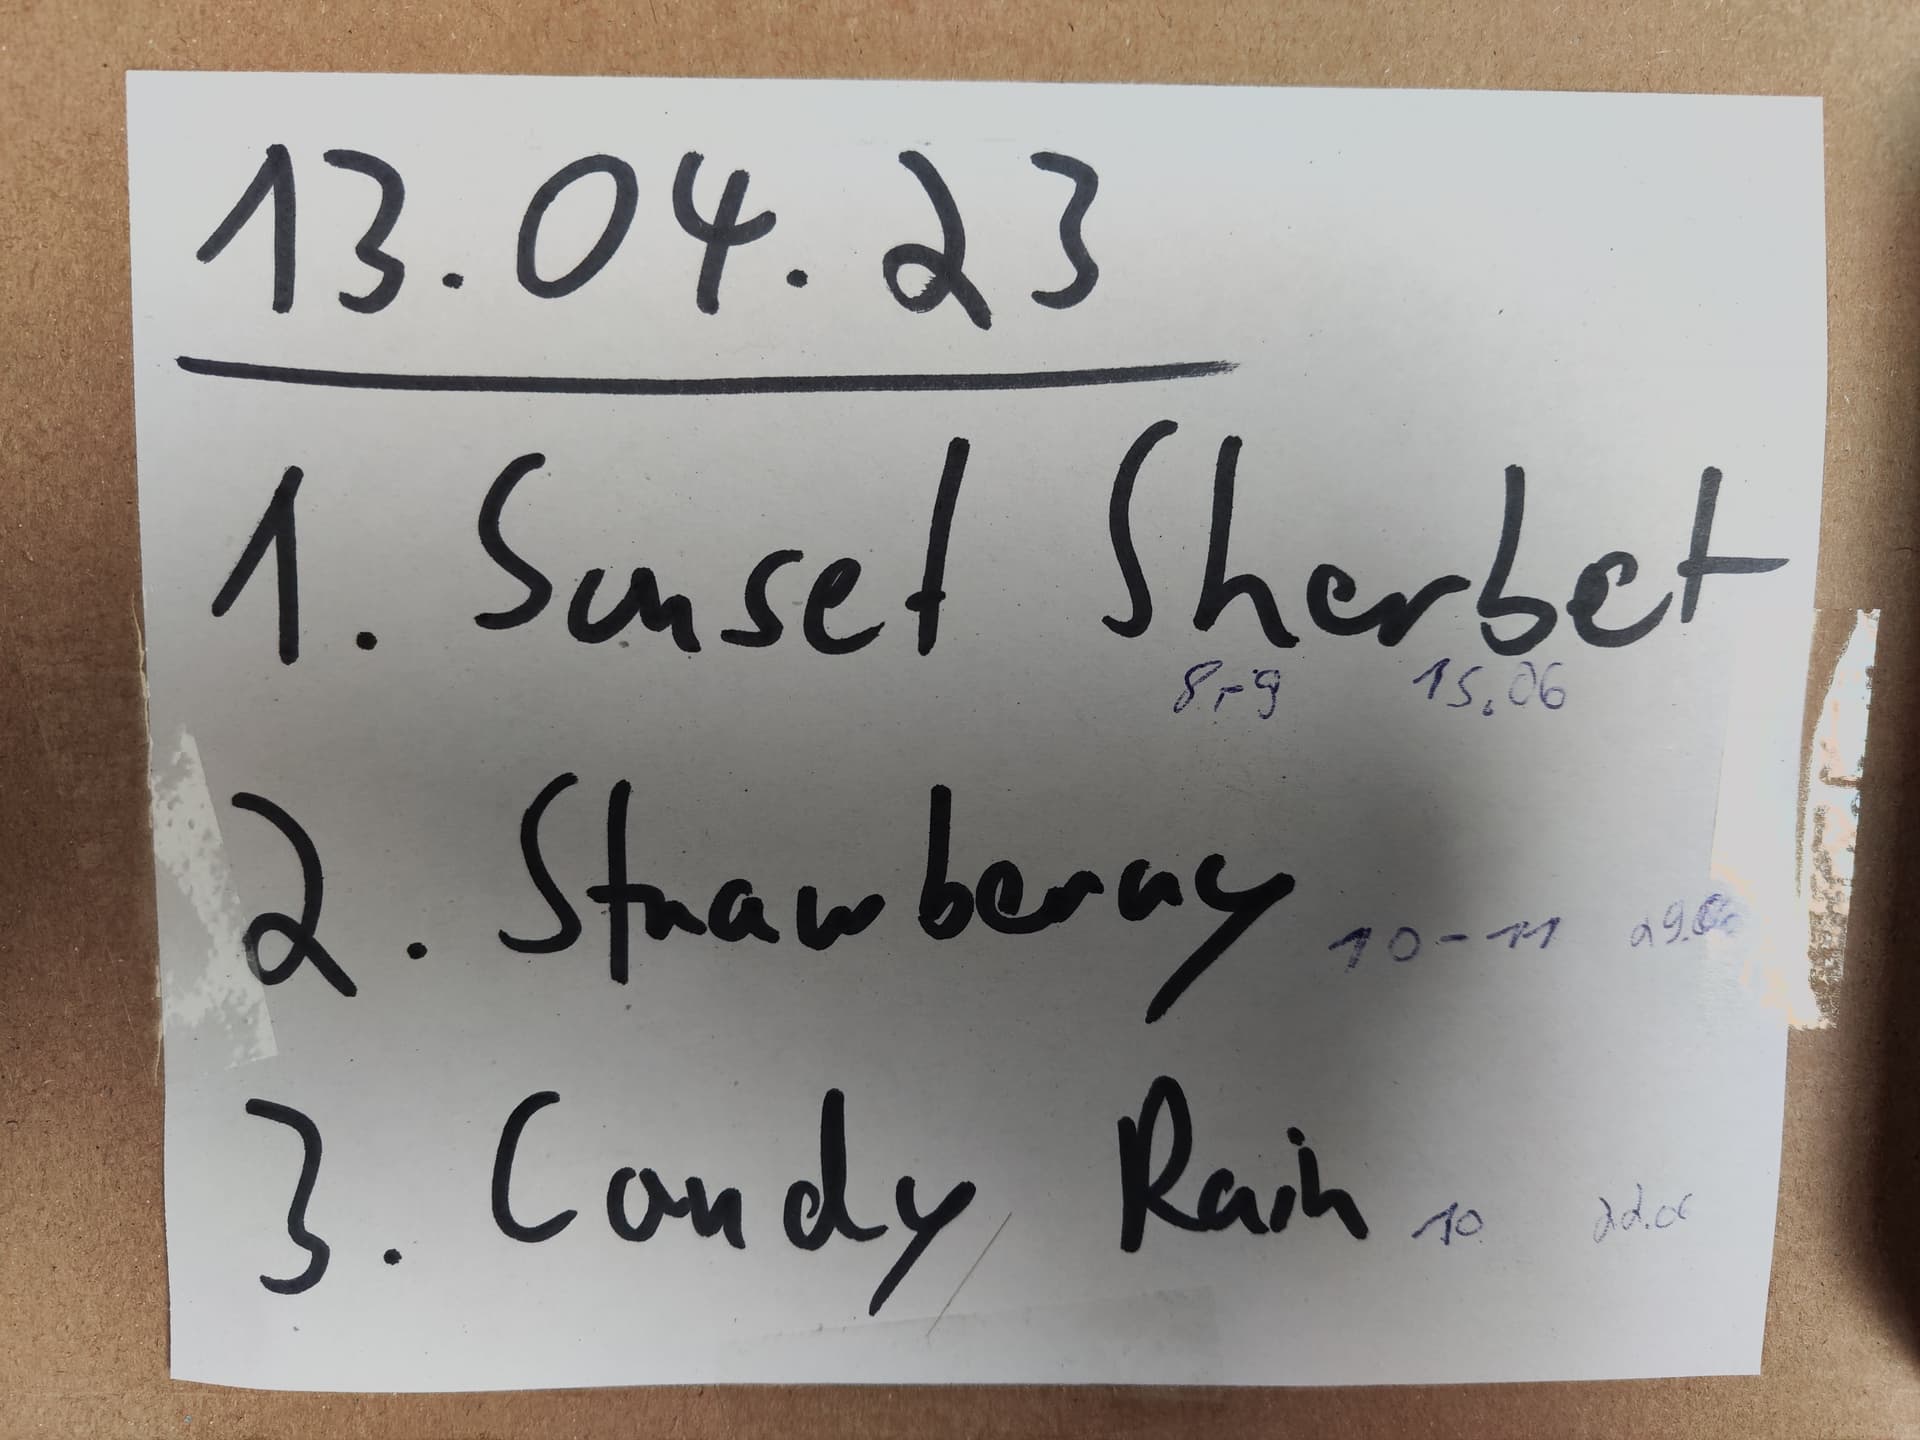 13.04.23
1. Sunset Sherbet
8-9 15.06
2. Strawberry 10-11
3. Candy Rain 10 22.06